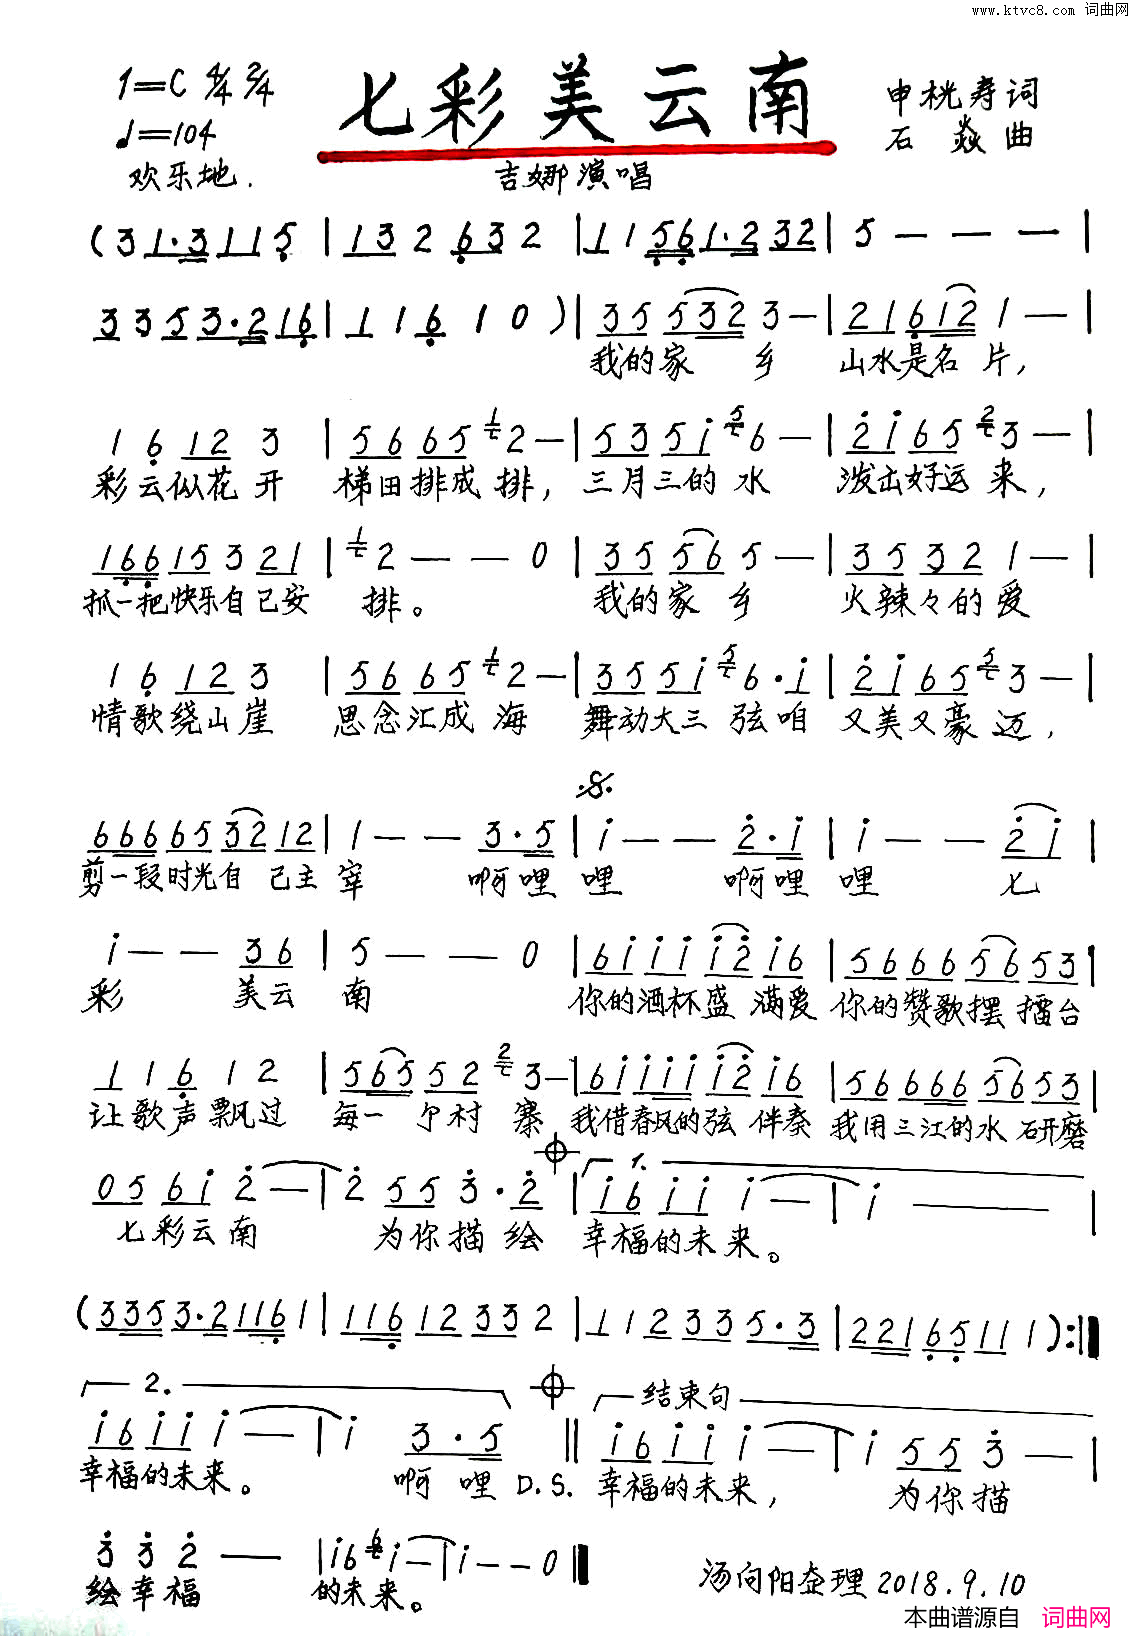 www.ktvc8.com 词曲网
1=C 4/4 2/4
七彩美云南
申桄寿词
♩=104
石焱曲
欢乐地.
吉娜演唱
(3 1·3 1 1 5 | 1 3 2 6 3 2 | 1 1 5 6 1·2 3 2 | 5 — — — |
3 3 5 3·2 1 6 | 1 1 6 1 0 ) | 3 5 5 3 2 3 — | 2 1 6 1 2 1 — |
我的家 乡 山水是名 片,
1 6 1 2 3 | 5 6 6 5 2 — | 5 3 5 i 6 — | 2 i 6 5 3 — |
彩云似花开 梯田排成排, 三月三的水 泼出好运来,
1 6 6 1 5 3 2 1 | 2 — — 0 | 3 5 5 6 5 — | 3 5 3 2 1 — |
抓一把快乐自己安 排。 我的家 乡 火辣々的爱
1 6 1 2 3 | 5 6 6 5 2 — | 3 5 5 i 6·i | 2 i 6 5 3 — |
情歌绕山崖 思念汇成海 舞动大三弦咱 又美又豪迈,
6 6 6 6 5 3 2 1 2 | 1 — — 3·5 | i — — 2·i | i — — 2 i |
剪一段时光自 己主 宰 啊哩 哩 啊哩 哩 七
i — — 3 6 | 5 — — 0 | 6 i i i i 2 i 6 | 5 6 6 6 5 6 5 3 |
彩 美云 南 你的酒杯盛 满爱 你的赞歌摆 擂台
1 1 6 1 2 | 5 6 5 5 2 3 — | 6 i i i i i 2 i 6 | 5 6 6 6 6 5 6 5 3 |
让歌声飘过 每一 个村 寨 我借春风的弦 伴奏 我用三江的水 研磨
1.
0 5 6 i 2 — | 2 5 5 3·2 | i 6 i i i — | i ——— |
七彩云南 为你描绘 幸福的未来。
(3 3 5 3·2 1 1 6 1 | 1 1 6 1 2 3 3 2 | 1 1 2 3 3 5·3 | 2 2 1 6 5 1 1 1 ) :‖
2. 结束句
i 6 i i i — | i 3·5 ‖ i 6 i i i — | i 5 5 3 — |
幸福的未来。 啊 哩 D.S. 幸福的未来, 为你描
3 3 2 —— | i 6 i — | i — — 0 ‖
绘幸福 的未来。
汤向阳整理 2018.9.10
本曲谱源自 词曲网